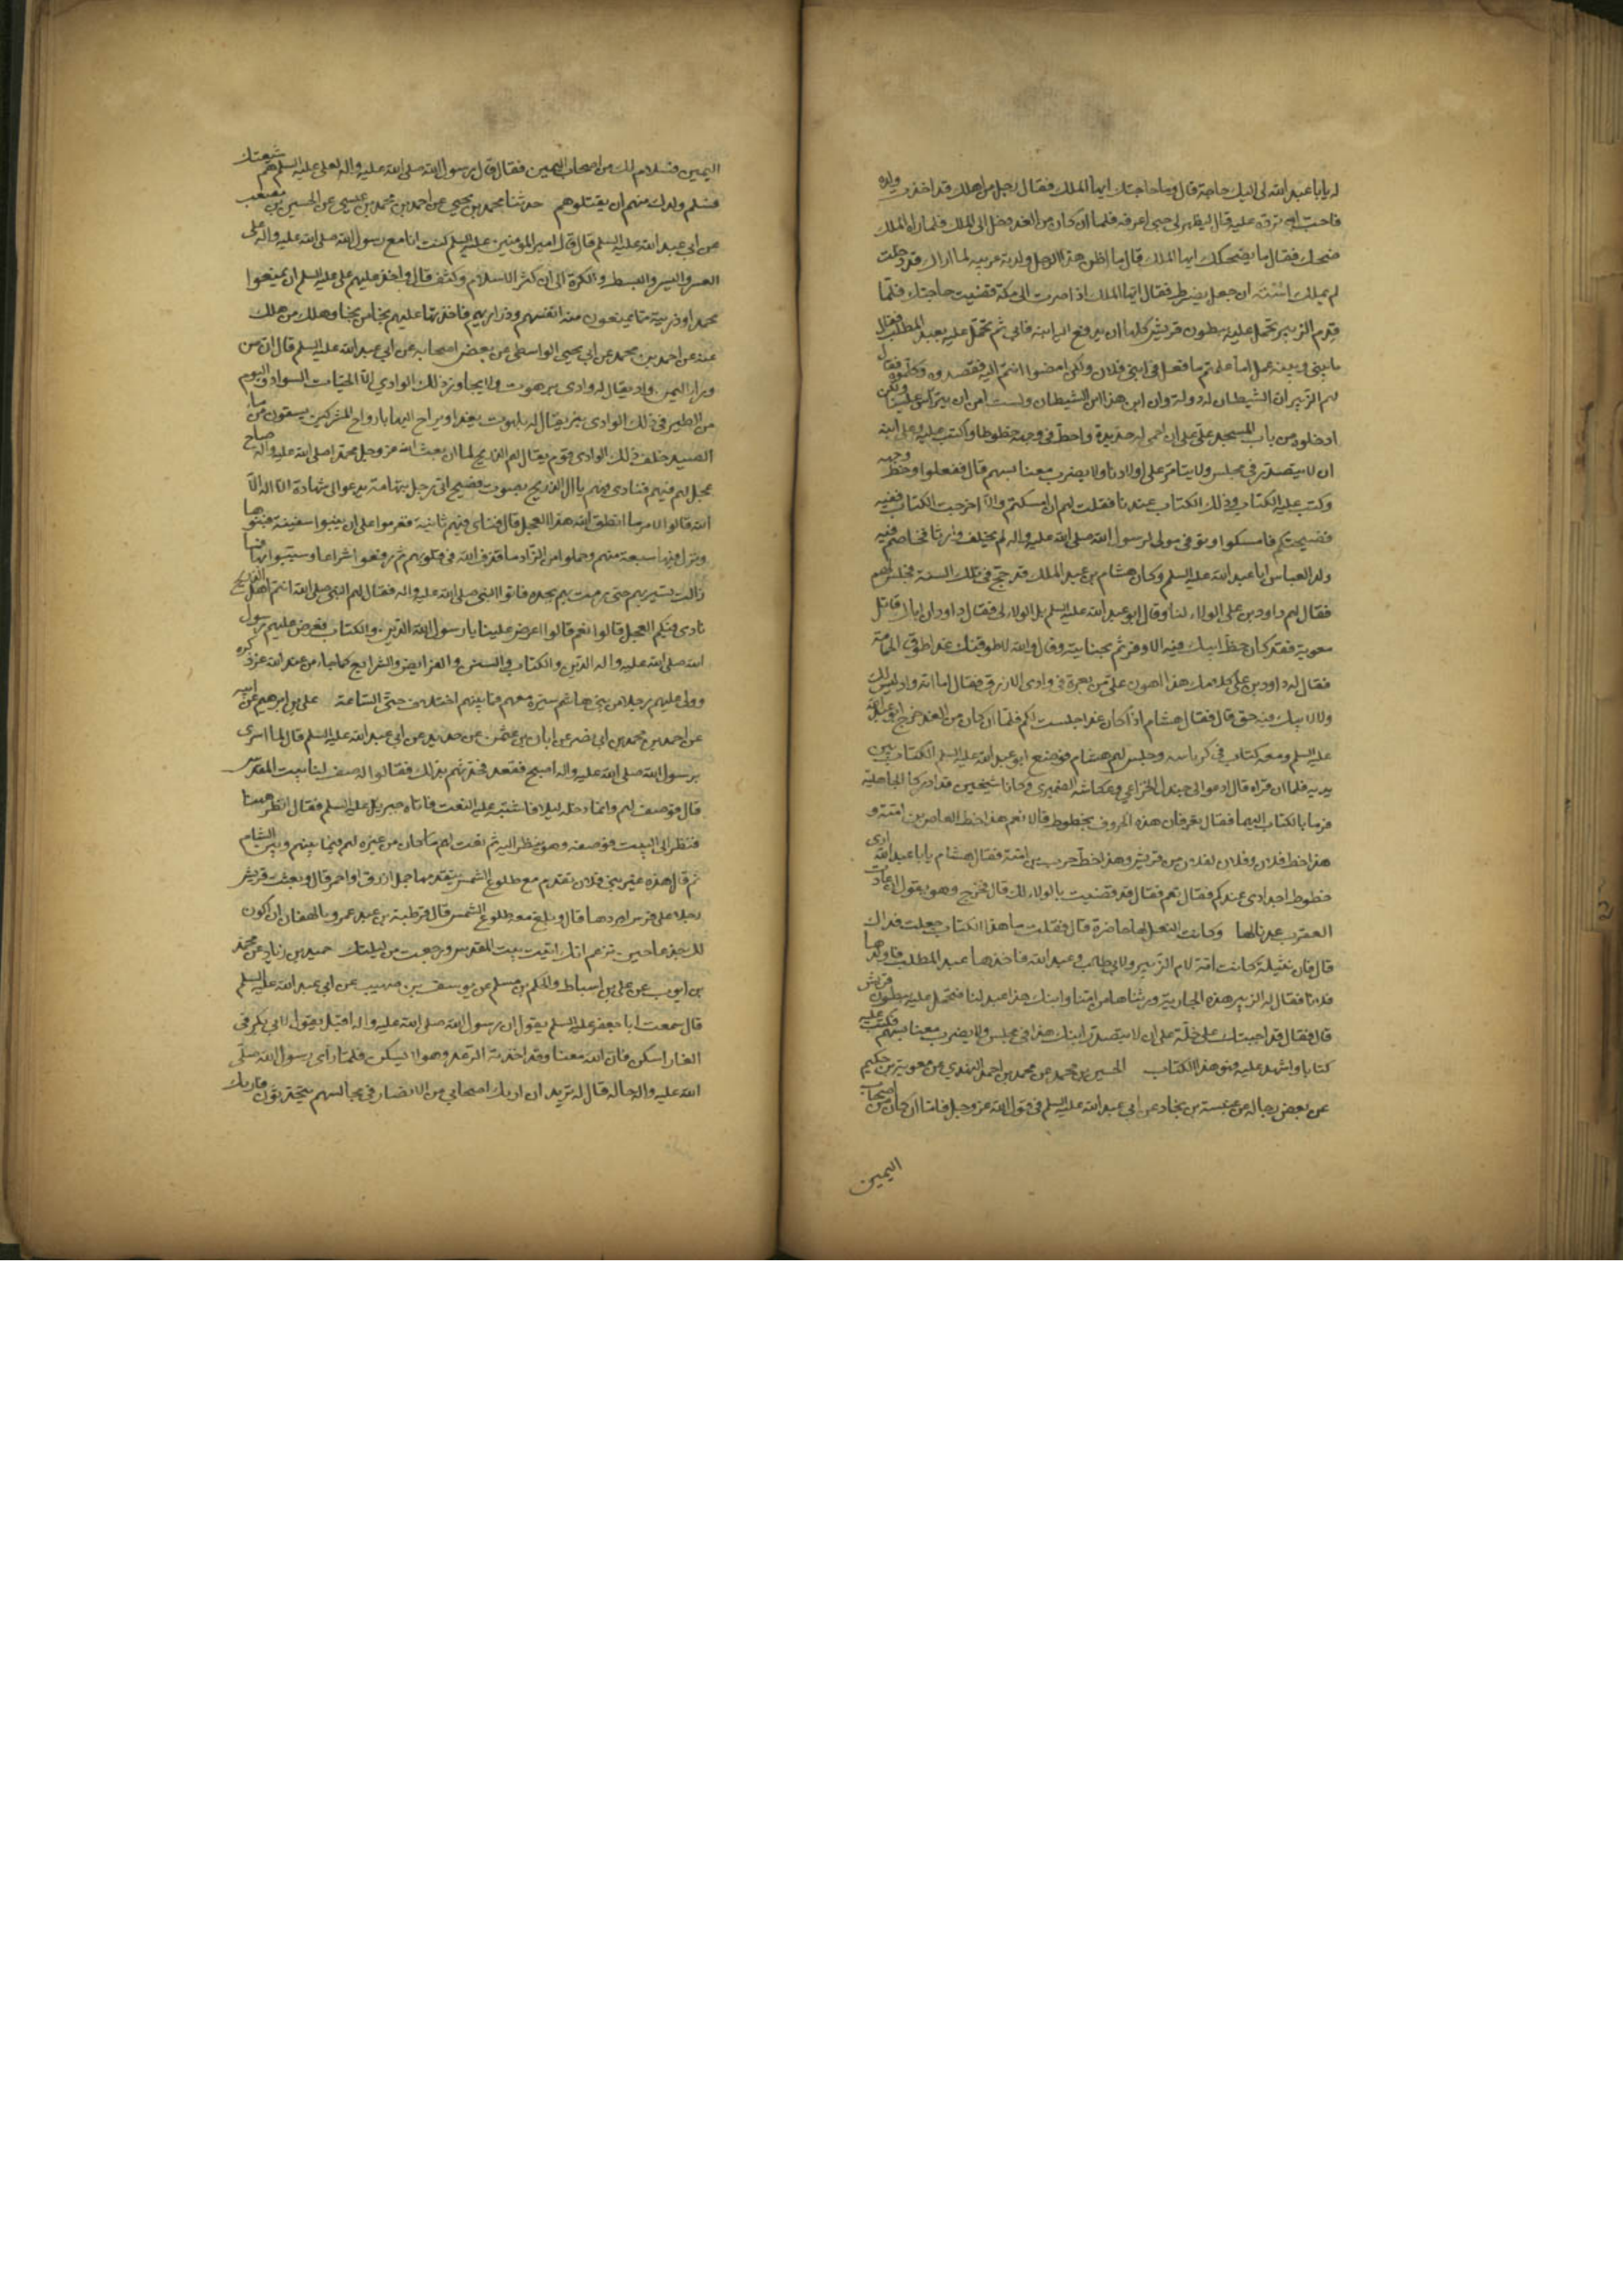 له يابا عبد الله لى اليك حاجة قال وما حاجتك ايها الملك فقال رجل من اهلك قد اخذت ولده
فاحب ان ترده عليه قال ليظهر لى حتى اعرفه فلما ان كان من الغد دخل الى الملك فلما راه الملك
ضحك فقال ما يضحكك ايها الملك قال ما اظن هذا الرجل ولدته عربية لما راك قد دخلت
لم يملك استه ان جعل يضرط فقال ايها الملك اذا صرت الى مكة قضيت حاجتك فلما
قدم الزبير تحمل عليه ببطون قريش كلها ان يدفع اليه ابنه فابى ثم تحمل عليه بعبد المطلب فقال
ما بينى وبينه عمل اما علمتم ما فعل فى ابنى فلان ولكن امضوا انتم اليه فقصدوه وكلموه فقال
لهم الزبير ان الشيطان له دولة وان ابن هذا ابن الشيطان ولست امن ان يتراس علينا ولكن
ادخلوه من باب المسجد على على ان احمى له حديدة واخط فى وجهه خطوطا واكتب عليه وعلى ابنه
ان لا يتصدر فى مجلس ولا يتامر على اولادنا ولا يضرب معنا بسهم قال ففعلوا وخط وجهه
وكتب عليه الكتاب وذلك الكتاب عندنا فقلت لهم ان امسكتم والا اخرجت الكتاب ففيه
فضيحتكم فامسكوا وتوفى مولى لرسول الله صلى الله عليه واله لم يخلف وارثا فخاصم فيه
ولد العباس ابا عبد الله عليه السلم وكان هشام بن عبد الملك قد حج فى تلك السنة فجلس لهم
فقال لهم داود بن على الولاء لنا وقال ابو عبد الله عليه السلم بل الولاء لى فقال داود ان اباك قاتل
معوية فقد كان حظ ابيك فيه الاوفر ثم بجنايته وقال والله لاطوقنك غدا طوق الحمامة
فقال له داود بن على كلامك هذا اهون على من بعرة فى وادى الازرق فقال اما انه واد ليس لك
ولا لابيك فيه حق قال فقال هشام اذا كان غدا جلست لكم فلما ان كان من الغد خرج ابو عبد الله
عليه السلم ومعه كتاب فى كرباسه وجلس لهم هشام فوضع ابو عبد الله عليه السلم الكتاب بين
يديه فلما ان قراه قال ادعوا لى جندل الخزاعى وعكاشه الضميرى وكانا شيخين قد ادركا الجاهلية
فرما بالكتاب اليهما فقال تعرفان هذه الحروف بخطوط قالا نعم هذا خط العاص بن امية و
هذا خط فلان وفلان لفلان من قريش وهذا خط حرب بن امية فقال هشام يابا عبد الله ارى
خطوط اجدادى عندكم فقال نعم فقال قد قضيت بالولاء لك قال فخرج وهو يقول ان عادت
العقرب عدنا لها وكانت النعل لها حاضرة قال فقلت ما هذا الكتاب جعلت فداك
قال فان نثيلة كانت امة لام الزبير ولابى طالب وعبد الله فاخذها عبد المطلب فاولدها
فلانا فقال له الزبير هذه الجارية ورثناها من امنا وابنك هذا عبد لنا فتحمل عليه ببطون قريش
قال فقال قد اجبتك على خلة على ان لا يتصدر ابنك هذا فى مجلس ولا يضرب معنا بسهم فكتب عليه
كتابا واشهد عليه فهو هذا الكتاب الحسين بن محمد عن محمد بن احمد النهدي عن معوية بن حكيم
عن بعض رجاله عن عنبسة بن بجاد عن ابى عبد الله عليه السلم فى قول الله عز وجل فاما ان كان من اصحاب
اليمين
اليمين فسلام لك من اصحاب اليمين فقال قال رسول الله صلى الله عليه واله لعلى عليه السلم هم شيعتك
فسلم ولدك منهم ان يقتلوهم حدثنا محمد بن يحيى عن احمد بن محمد بن عيسى عن الحسين بن
عن ابى عبد الله عليه السلم قال قال امير المومنين عليه السلم كنت انا مع رسول الله صلى الله عليه واله على
العسر واليسر والبسط والكره الى ان كثر الاسلام وكثف قال واخذ عليهم على عليه السلم ان يمنعوا
محمدا وذريته مما يمنعون منه انفسهم وذراريهم فاخذتها عليهم نجا من نجا وهلك من هلك
عنه عن احمد بن محمد عن ابى يحيى الواسطى عن بعض اصحابه عن ابى عبد الله عليه السلم قال ان من
وراء اليمن واد يقال له وادى برهوت ولا يجاوز ذلك الوادى الا الحيات السود والبوم
من الطير فى ذلك الوادى بئر يقال له بلهوت يغدا ويراح اليها بارواح المشركين يسقون من ماء
الصديد خلف ذلك الوادى قوم يقال لهم الذريح لما ان بعث الله عز وجل محمدا صلى الله عليه واله صاح
عجل لهم فيهم فنادى فيهم يا ال الذريح بصوت فصيح اتى رجل بتهامة يدعو الى شهادة ان لا اله الا
الله قالوا لامر ما انطق الله هذا العجل قال فنادى فيهم ثانية فعزموا على ان يبنوا سفينة فبنوها
ونزل فيها سبعة منهم وحملوا من الزاد ما قذف الله فى قلوبهم ثم رفعوا شراعا وسيبوها فما
زالت تسير بهم حتى رمت بهم بجدة فاتوا النبى صلى الله عليه واله فقال لهم النبى صلى الله انتم اهل الذريح
نادى فيكم العجل قالوا نعم قالوا اعرض علينا يا رسول الله الدين والكتاب فعرض عليهم رسول
الله صلى الله عليه واله الدين والكتاب والسنن والفرايض والشرايع كما جاء من عند الله عز ذكره
وولى عليهم رجلا من بنى هاشم سيره معهم فما بينهم اختلاف حتى الساعة على بن ابرهيم عن ابيه
عن احمد بن محمد بن ابى نصر عن ابان بن عثمن عن حديد عن ابى عبد الله عليه السلم قال لما اسرى
برسول الله صلى الله عليه واله اصبح فقعد فحدثهم بذلك فقالوا له صف لنا بيت المقدس
قال فوصف لهم وانما دخله ليلا فاشتبه عليه النعت فاتاه جبريل عليه السلم فقال انظر هيهنا
فنظر الى البيت فوصفه وهو ينظر اليه ثم نعت لهم ما كان من عير لهم فيما بينهم وبين الشام
ثم قال هذه عير بنى فلان تقدم مع طلوع الشمس يتقدمها جمل ازرق او احمر قال وبعث قريش
رجلا على فرس ليردها قال وبلغ مع طلوع الشمس قال قرطبة بن عبد عمرو يالهفا ان لا اكون
لك جذعا حين تزعم انك اتيت بيت المقدس ورجعت من ليلتك حميد بن زياد عن محمد
بن ايوب عن على بن اسباط والحكم بن مسلم عن يوسف بن صهيب عن ابى عبد الله عليه السلم
قال سمعت ابا جعفر عليه السلم يقول ان رسول الله صلى الله عليه واله اقبل يقول لابى بكر فى
الغار اسكن فان الله معنا وقد اخذته الرعدة وهو لا يسكن فلما راى رسول الله صلى
الله عليه واله حاله قال له تريد ان اريك اصحابى من الانصار فى مجالسهم يتحدثون فاريك